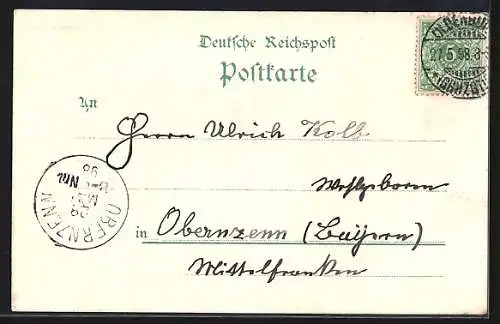 Deutsche Reichspost
Postkarte
An
Herrn Ulrich Kolb
Wohlgeboren
in Obernzenn (Bayern)
Mittelfranken
OBERNZENN
5